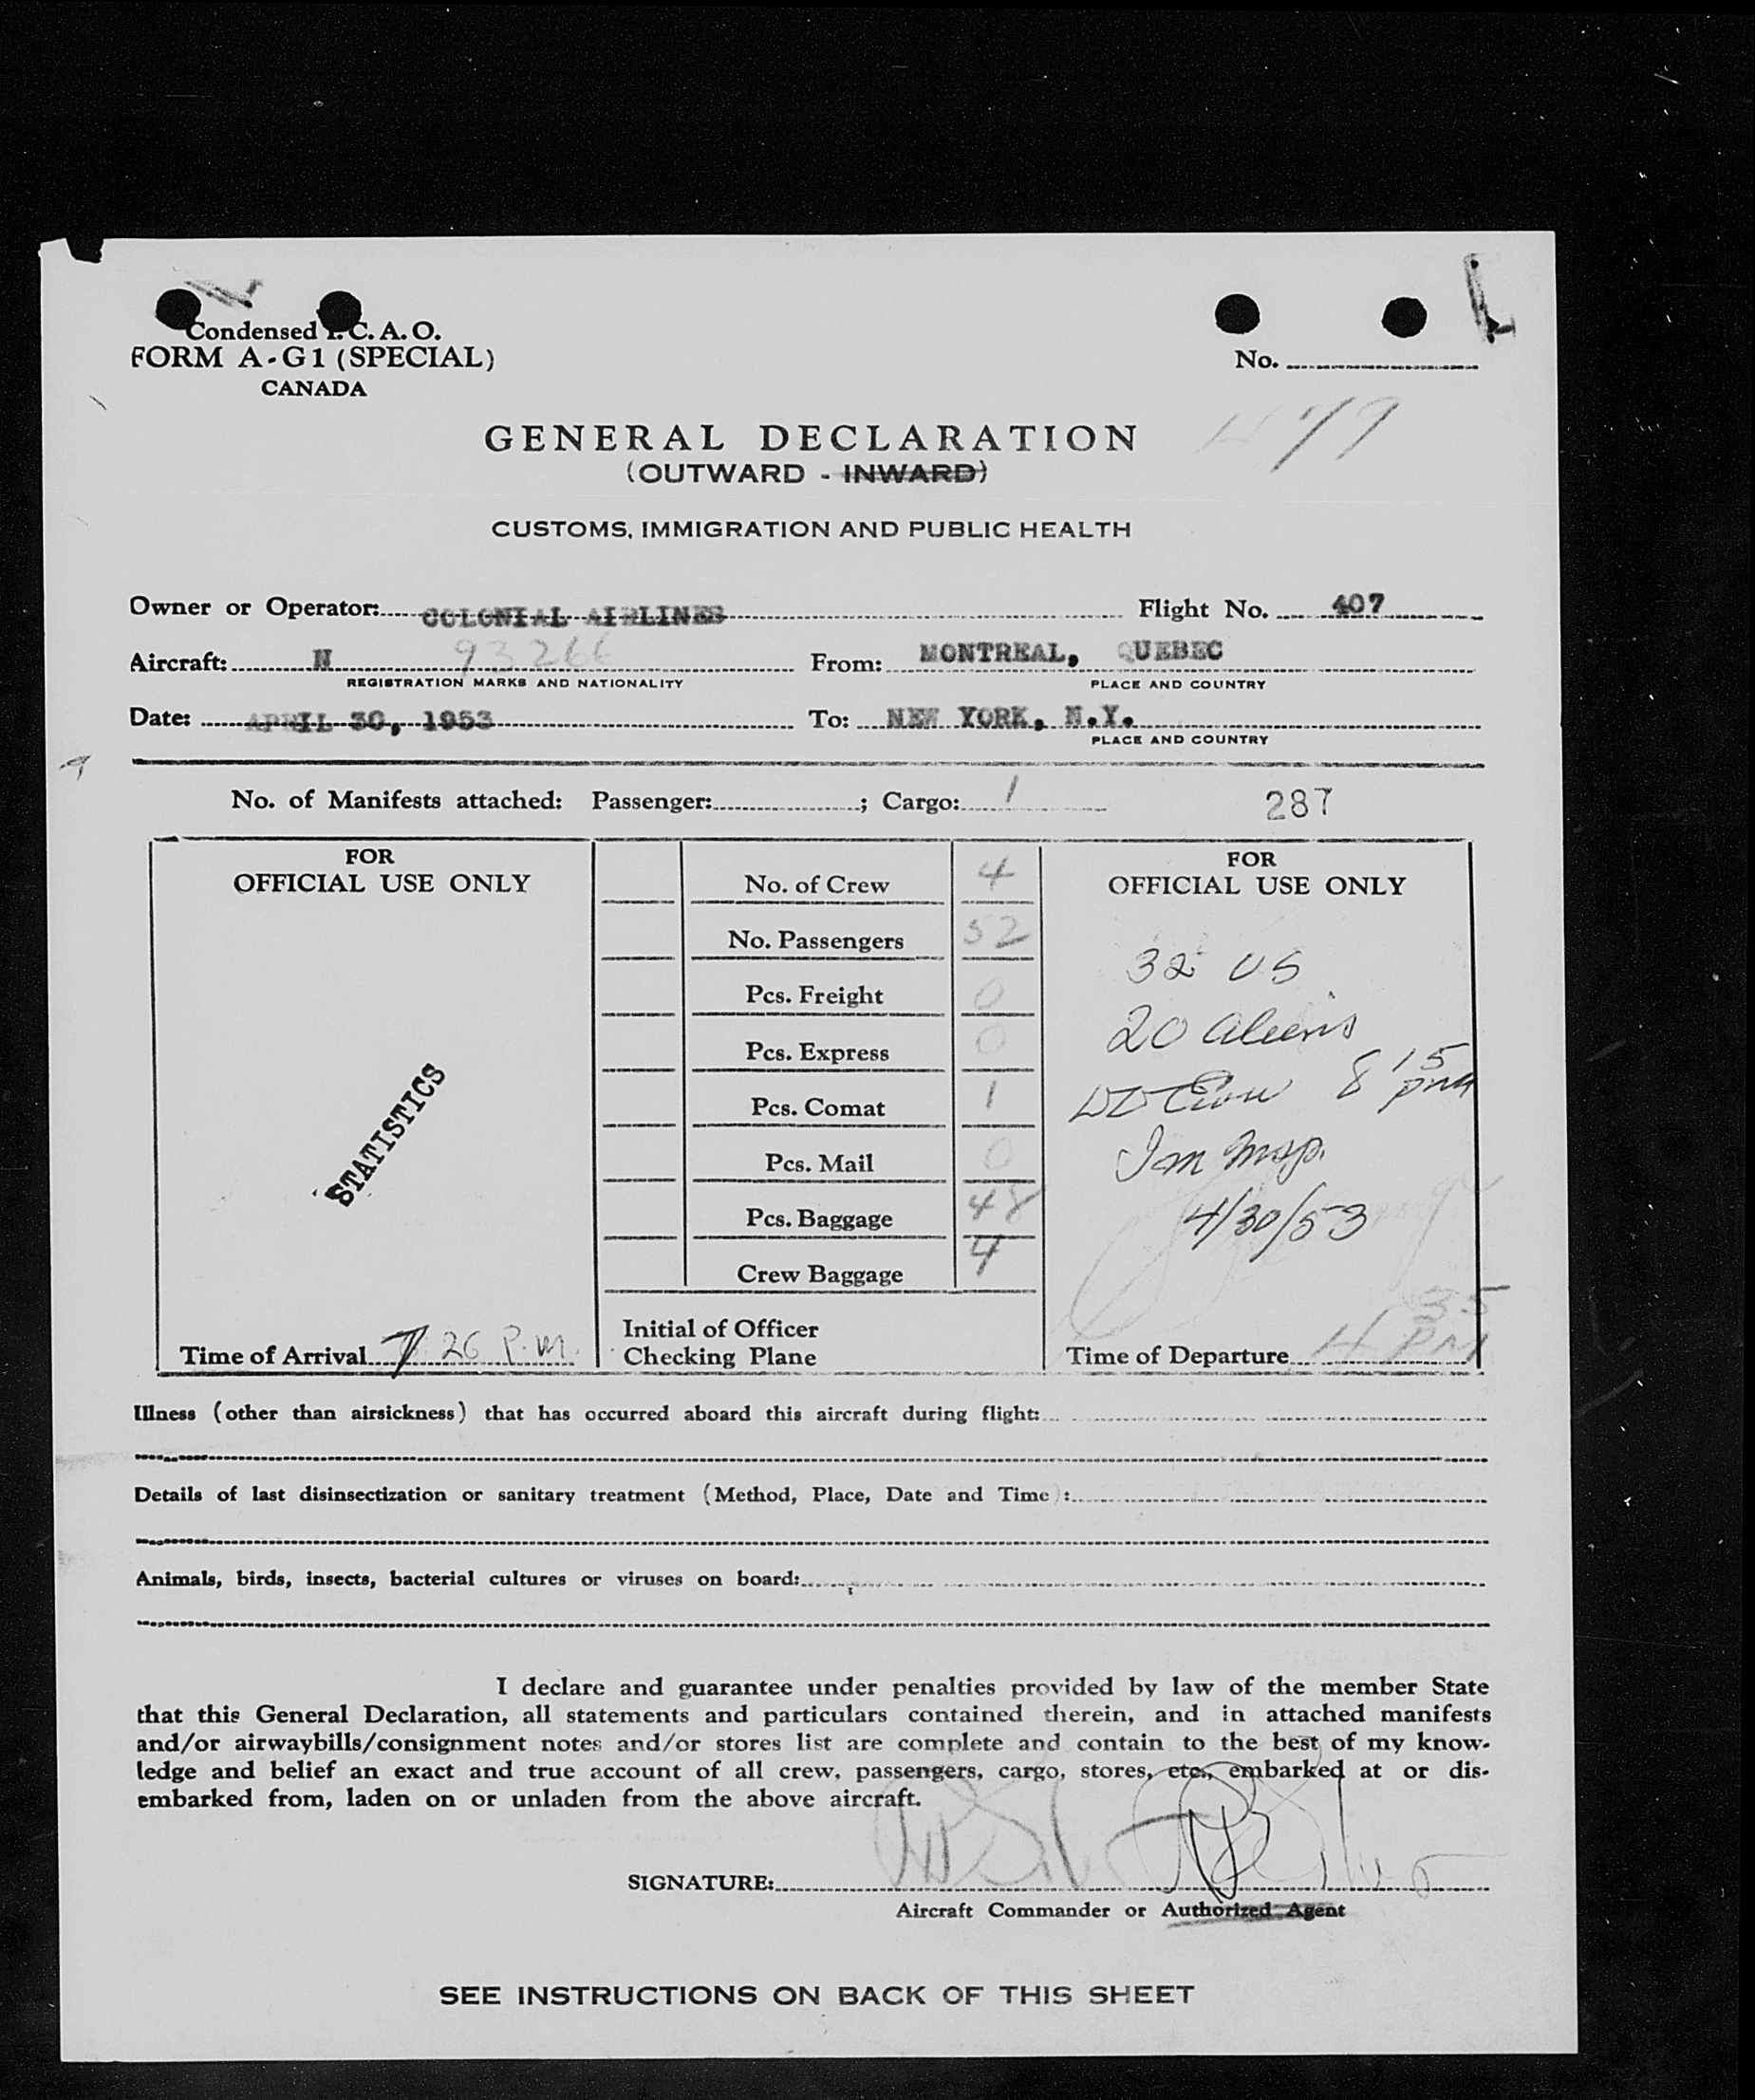 Condensed I.C.A.O.
FORM A-G1 (SPECIAL)
CANADA
No.
GENERAL DECLARATION
(OUTWARD - INWARD)
CUSTOMS, IMMIGRATION AND PUBLIC HEALTH
Owner or Operator: COLONIAL AIRLINES Flight No. 407
Aircraft: N 93266 From: MONTREAL, QUEBEC
REGISTRATION MARKS AND NATIONALITY PLACE AND COUNTRY
Date: APRIL 30, 1953 To: NEW YORK, N.Y.
PLACE AND COUNTRY
No. of Manifests attached: Passenger: ; Cargo: 1 287
FOR
OFFICIAL USE ONLY
STATISTICS
Time of Arrival 7 26 P.M.
No. of Crew 4
No. Passengers 52
Pcs. Freight 0
Pcs. Express 0
Pcs. Comat 1
Pcs. Mail 0
Pcs. Baggage 48
Crew Baggage 4
Initial of Officer
Checking Plane
FOR
OFFICIAL USE ONLY
32 US
20 aliens
8 15 pm
Im Insp.
4/30/53
Time of Departure 4 35 PM
Illness (other than airsickness) that has occurred aboard this aircraft during flight:
Details of last disinsectization or sanitary treatment (Method, Place, Date and Time):
Animals, birds, insects, bacterial cultures or viruses on board:
I declare and guarantee under penalties provided by law of the member State
that this General Declaration, all statements and particulars contained therein, and in attached manifests
and/or airwaybills/consignment notes and/or stores list are complete and contain to the best of my know-
ledge and belief an exact and true account of all crew, passengers, cargo, stores, etc., embarked at or dis-
embarked from, laden on or unladen from the above aircraft.
SIGNATURE:
Aircraft Commander or Authorized Agent
SEE INSTRUCTIONS ON BACK OF THIS SHEET